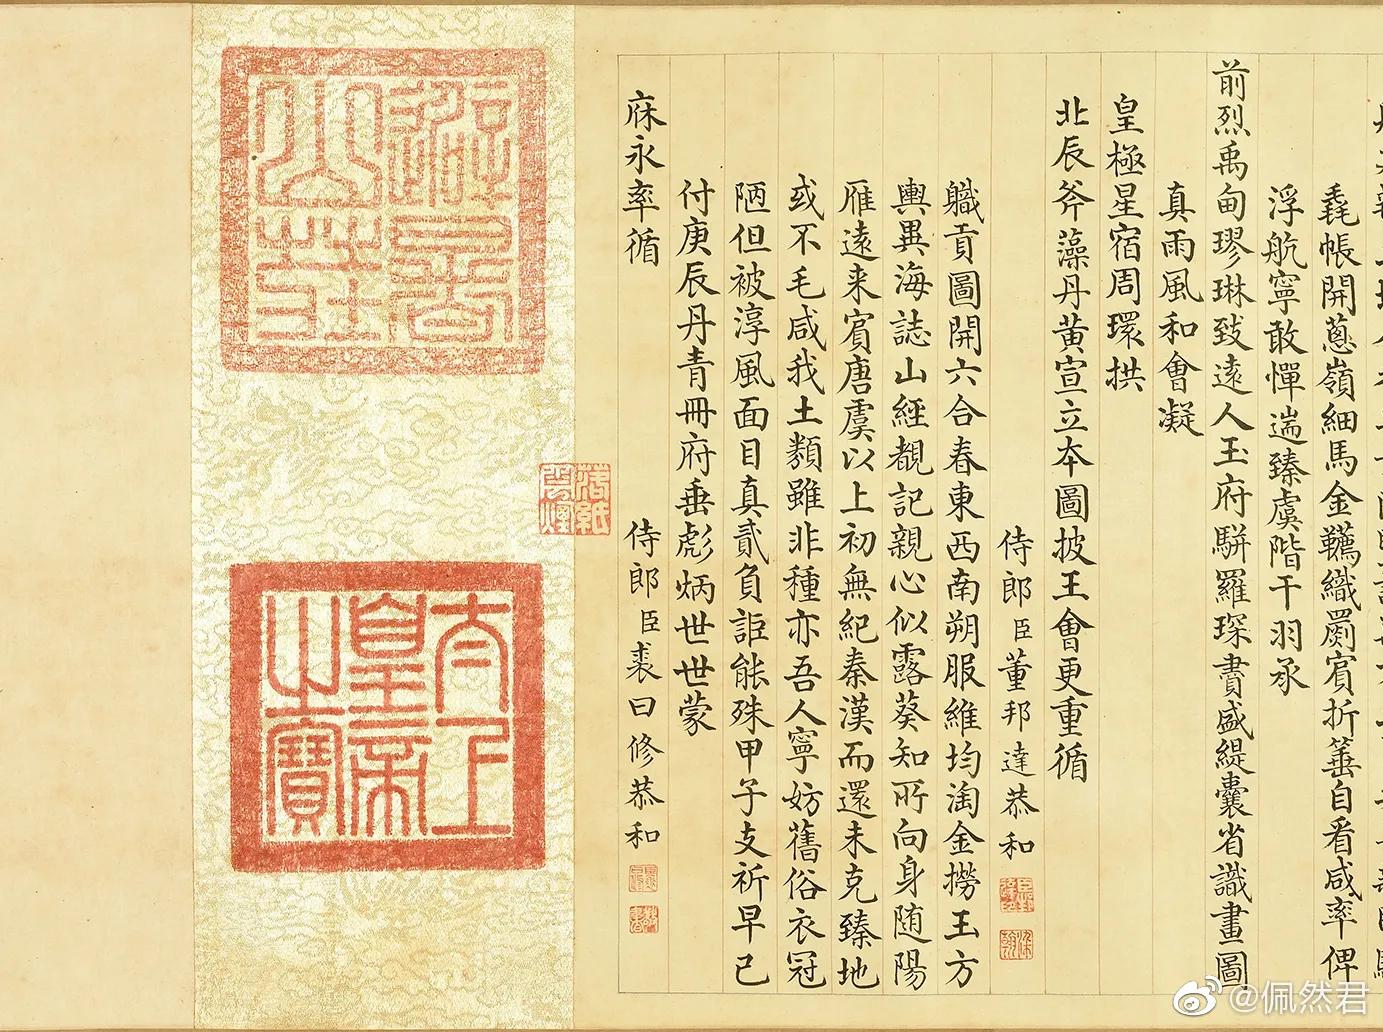 毳帳開蔥嶺細馬金韉織罽賔折箠自看咸率俾
浮航寧敢憚遄臻虞階干羽承
前烈禹甸璆琳致遠人玉府駢羅琛賮盛緹囊省識畫圖
真雨風和會凝
皇極星宿周環拱
北辰斧藻丹黄宣立本圖披王會更重循
侍郎臣董邦達恭和
職貢圖開六合春東西南朔服維均淘金撈玉方
輿異海誌山經覩記親心似露葵知所向身随陽
雁遠来賔唐虞以上初無紀秦漢而還未克臻地
或不毛咸我土類雖非種亦吾人寧妨舊俗衣冠
陋但被淳風面目真貳負詎能殊甲子支祈早已
付庚辰丹青冊府垂彪炳世世蒙
庥永率循
侍郎臣裘曰修恭和
落紙雲煙
避暑山莊
太上皇帝之寶
@佩然君